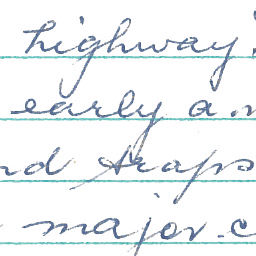 highway
early a.m
nd traps
major c